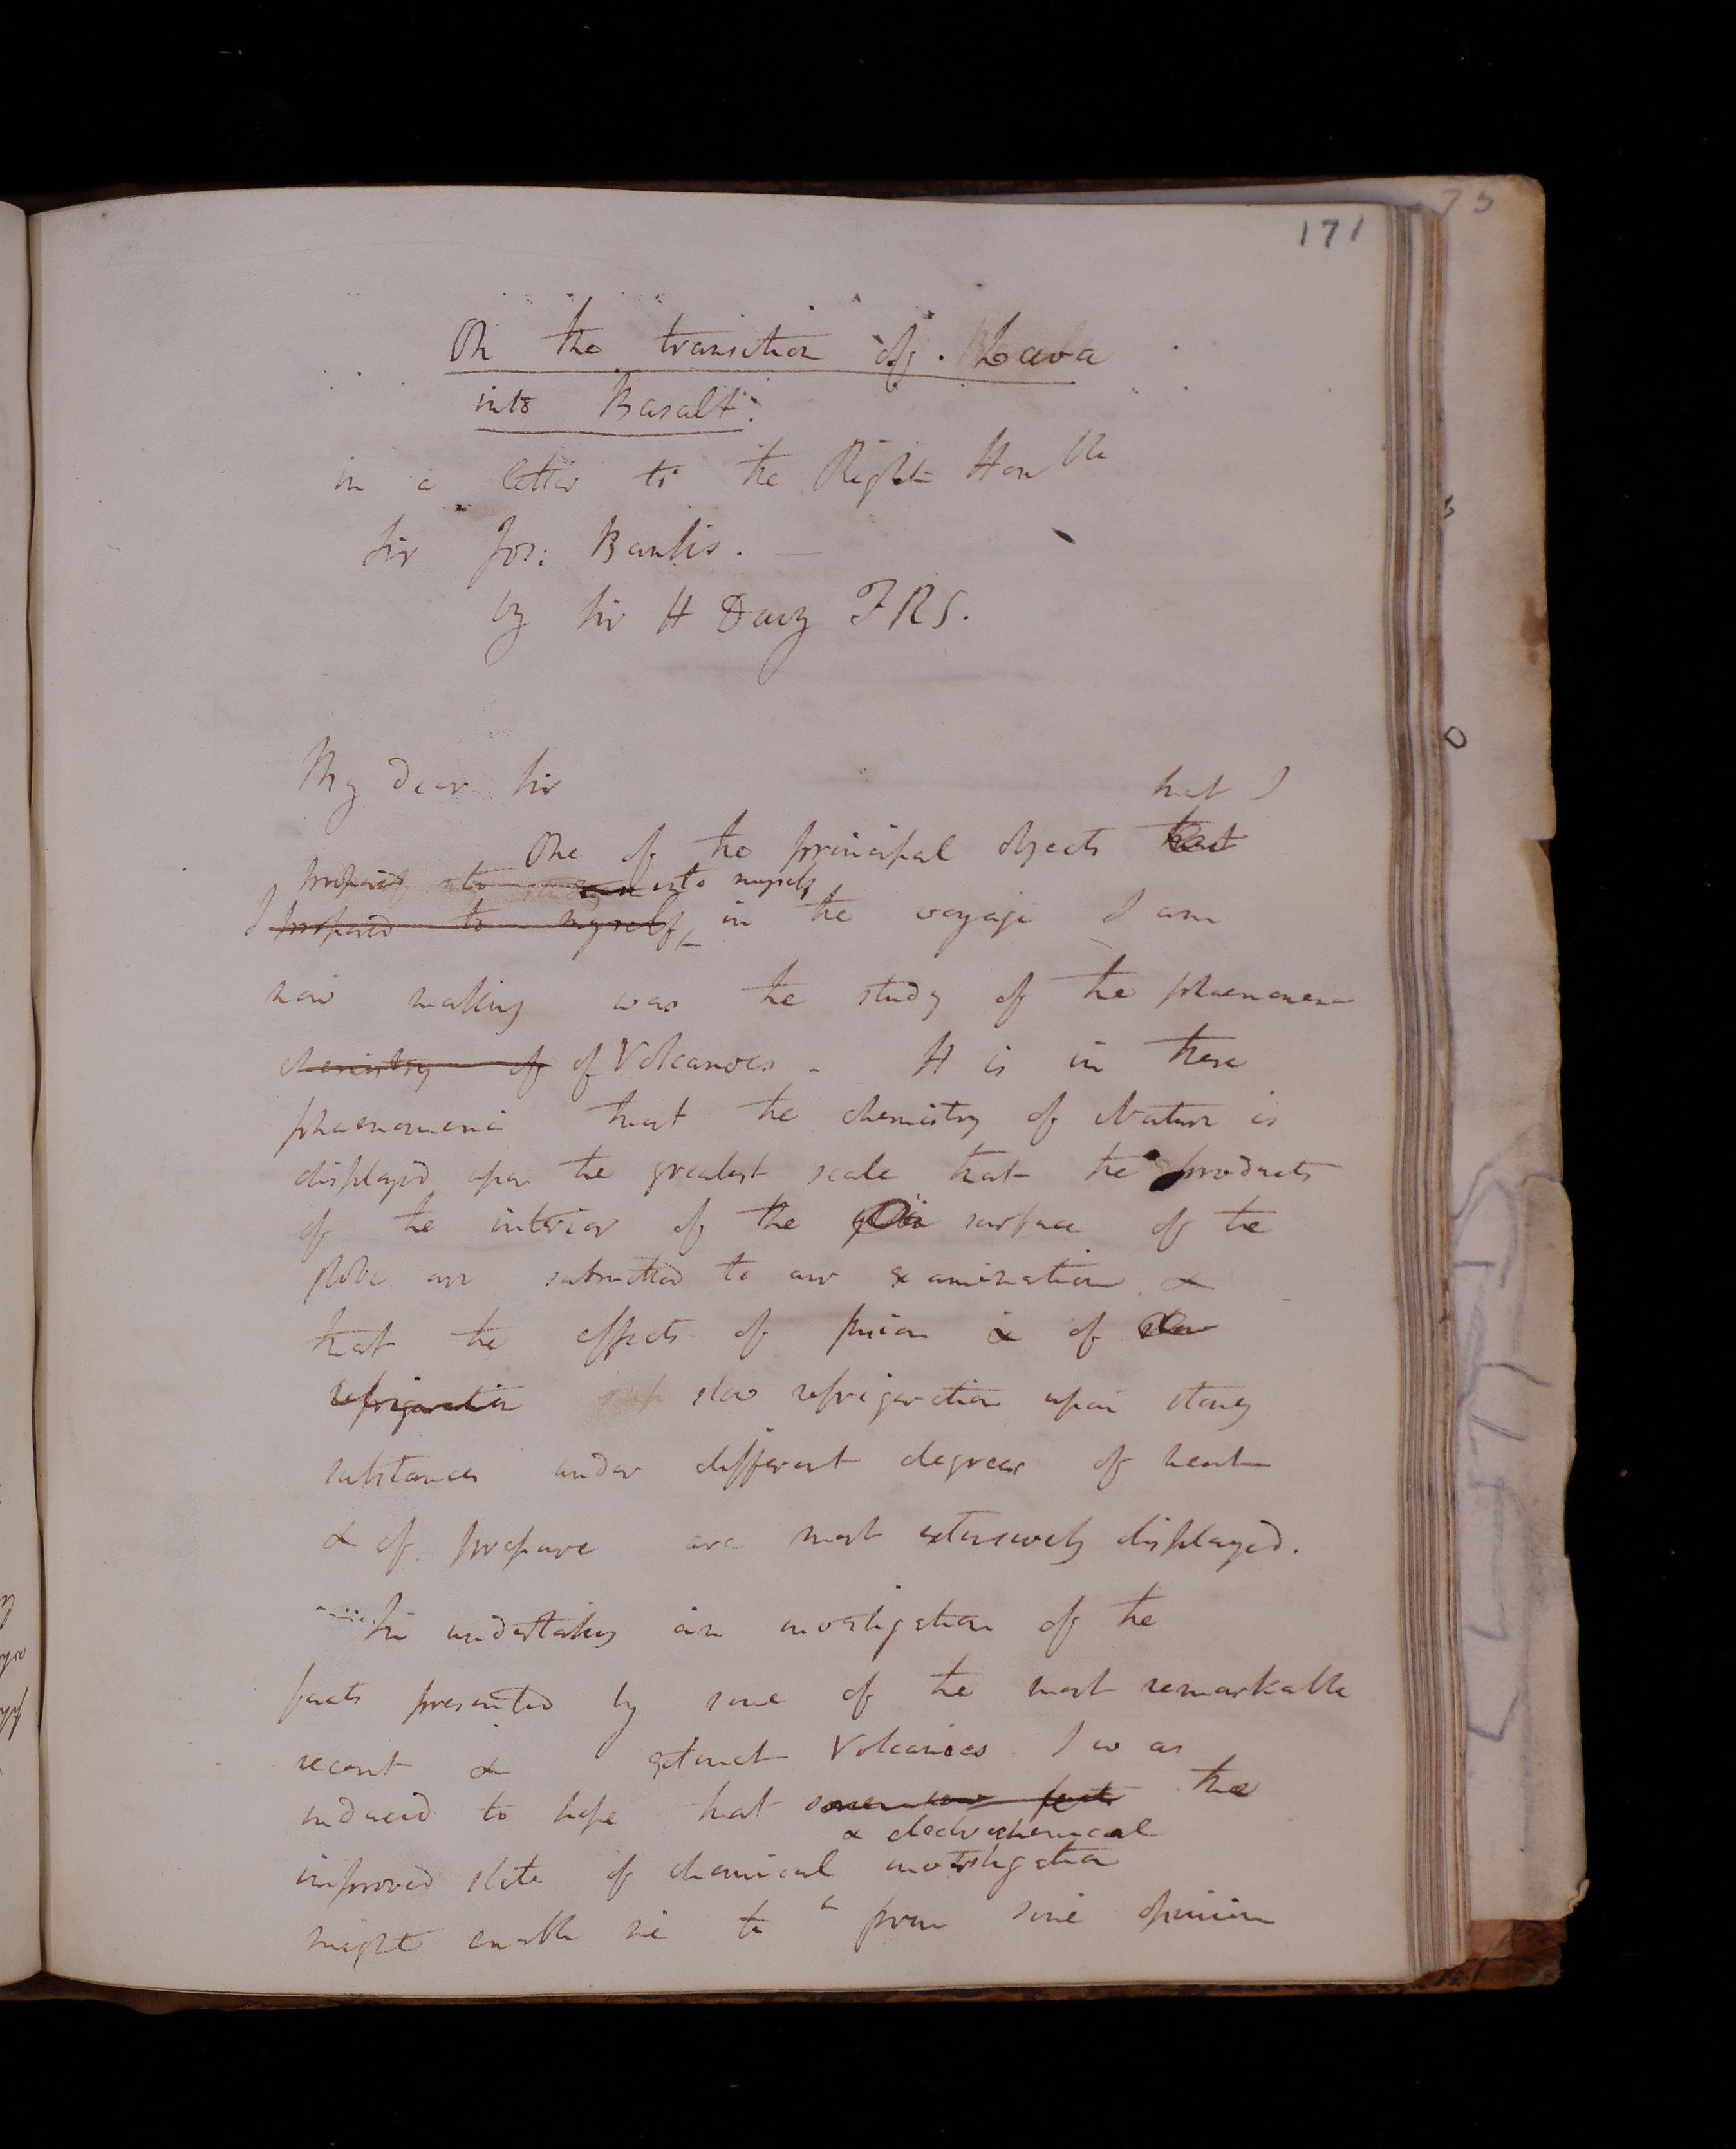 171
On the transition of Lava
into Basalt.
in a letter to the Right Honble
Sir Jos: Banks. —
by Sir H Davy FRS.
My dear Sir
that I
One of the principal objects that
proposed to myself
I proposed to myself, in the voyage I am
now making was the study of the phaenomena
chemistry of of Volcanoes - It is in these
phaenomena that the chemistry of Nature is
displayed upon the greatest scale that the products
of the interior of the surface of the
globe are submitted to our examination &
that the effects of fusion & of slow
refrigeration slow refrigeration upon stony
substances under different degrees of heat
& of pressure are most extensively displayed.
In undertaking an investigation of the
facts presented by some of the most remarkable
recent & extinct Volcanoes I was
induced to hope that some new facts the
& electrochemical
improved state of chemical investigation
might enable me to form some opinion